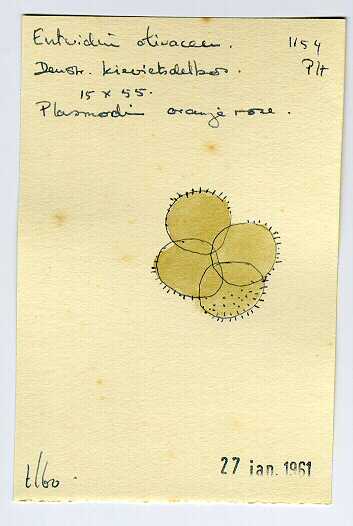 Enteridium olivaceum. 1154
Denstr. kievietsdelbos. Plt
15 x 55.
Plasmodium oranje rose.
27 jan. 1961